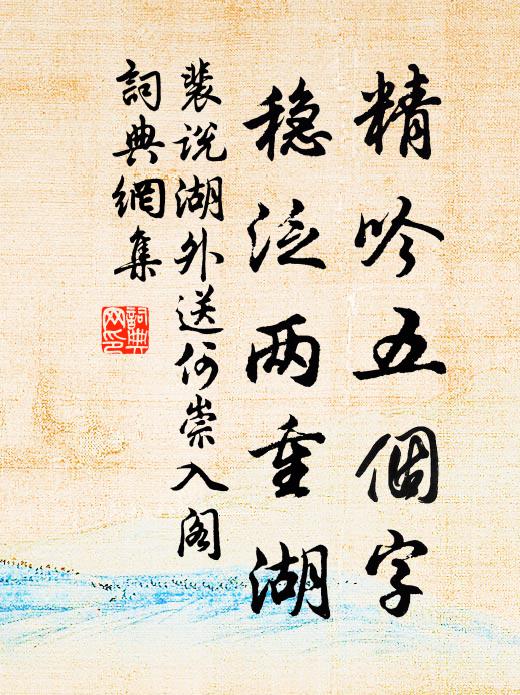 精吟五個字
穩泛两重湖
裴说湖外送何崇入阁
詞典網集
詞典网印